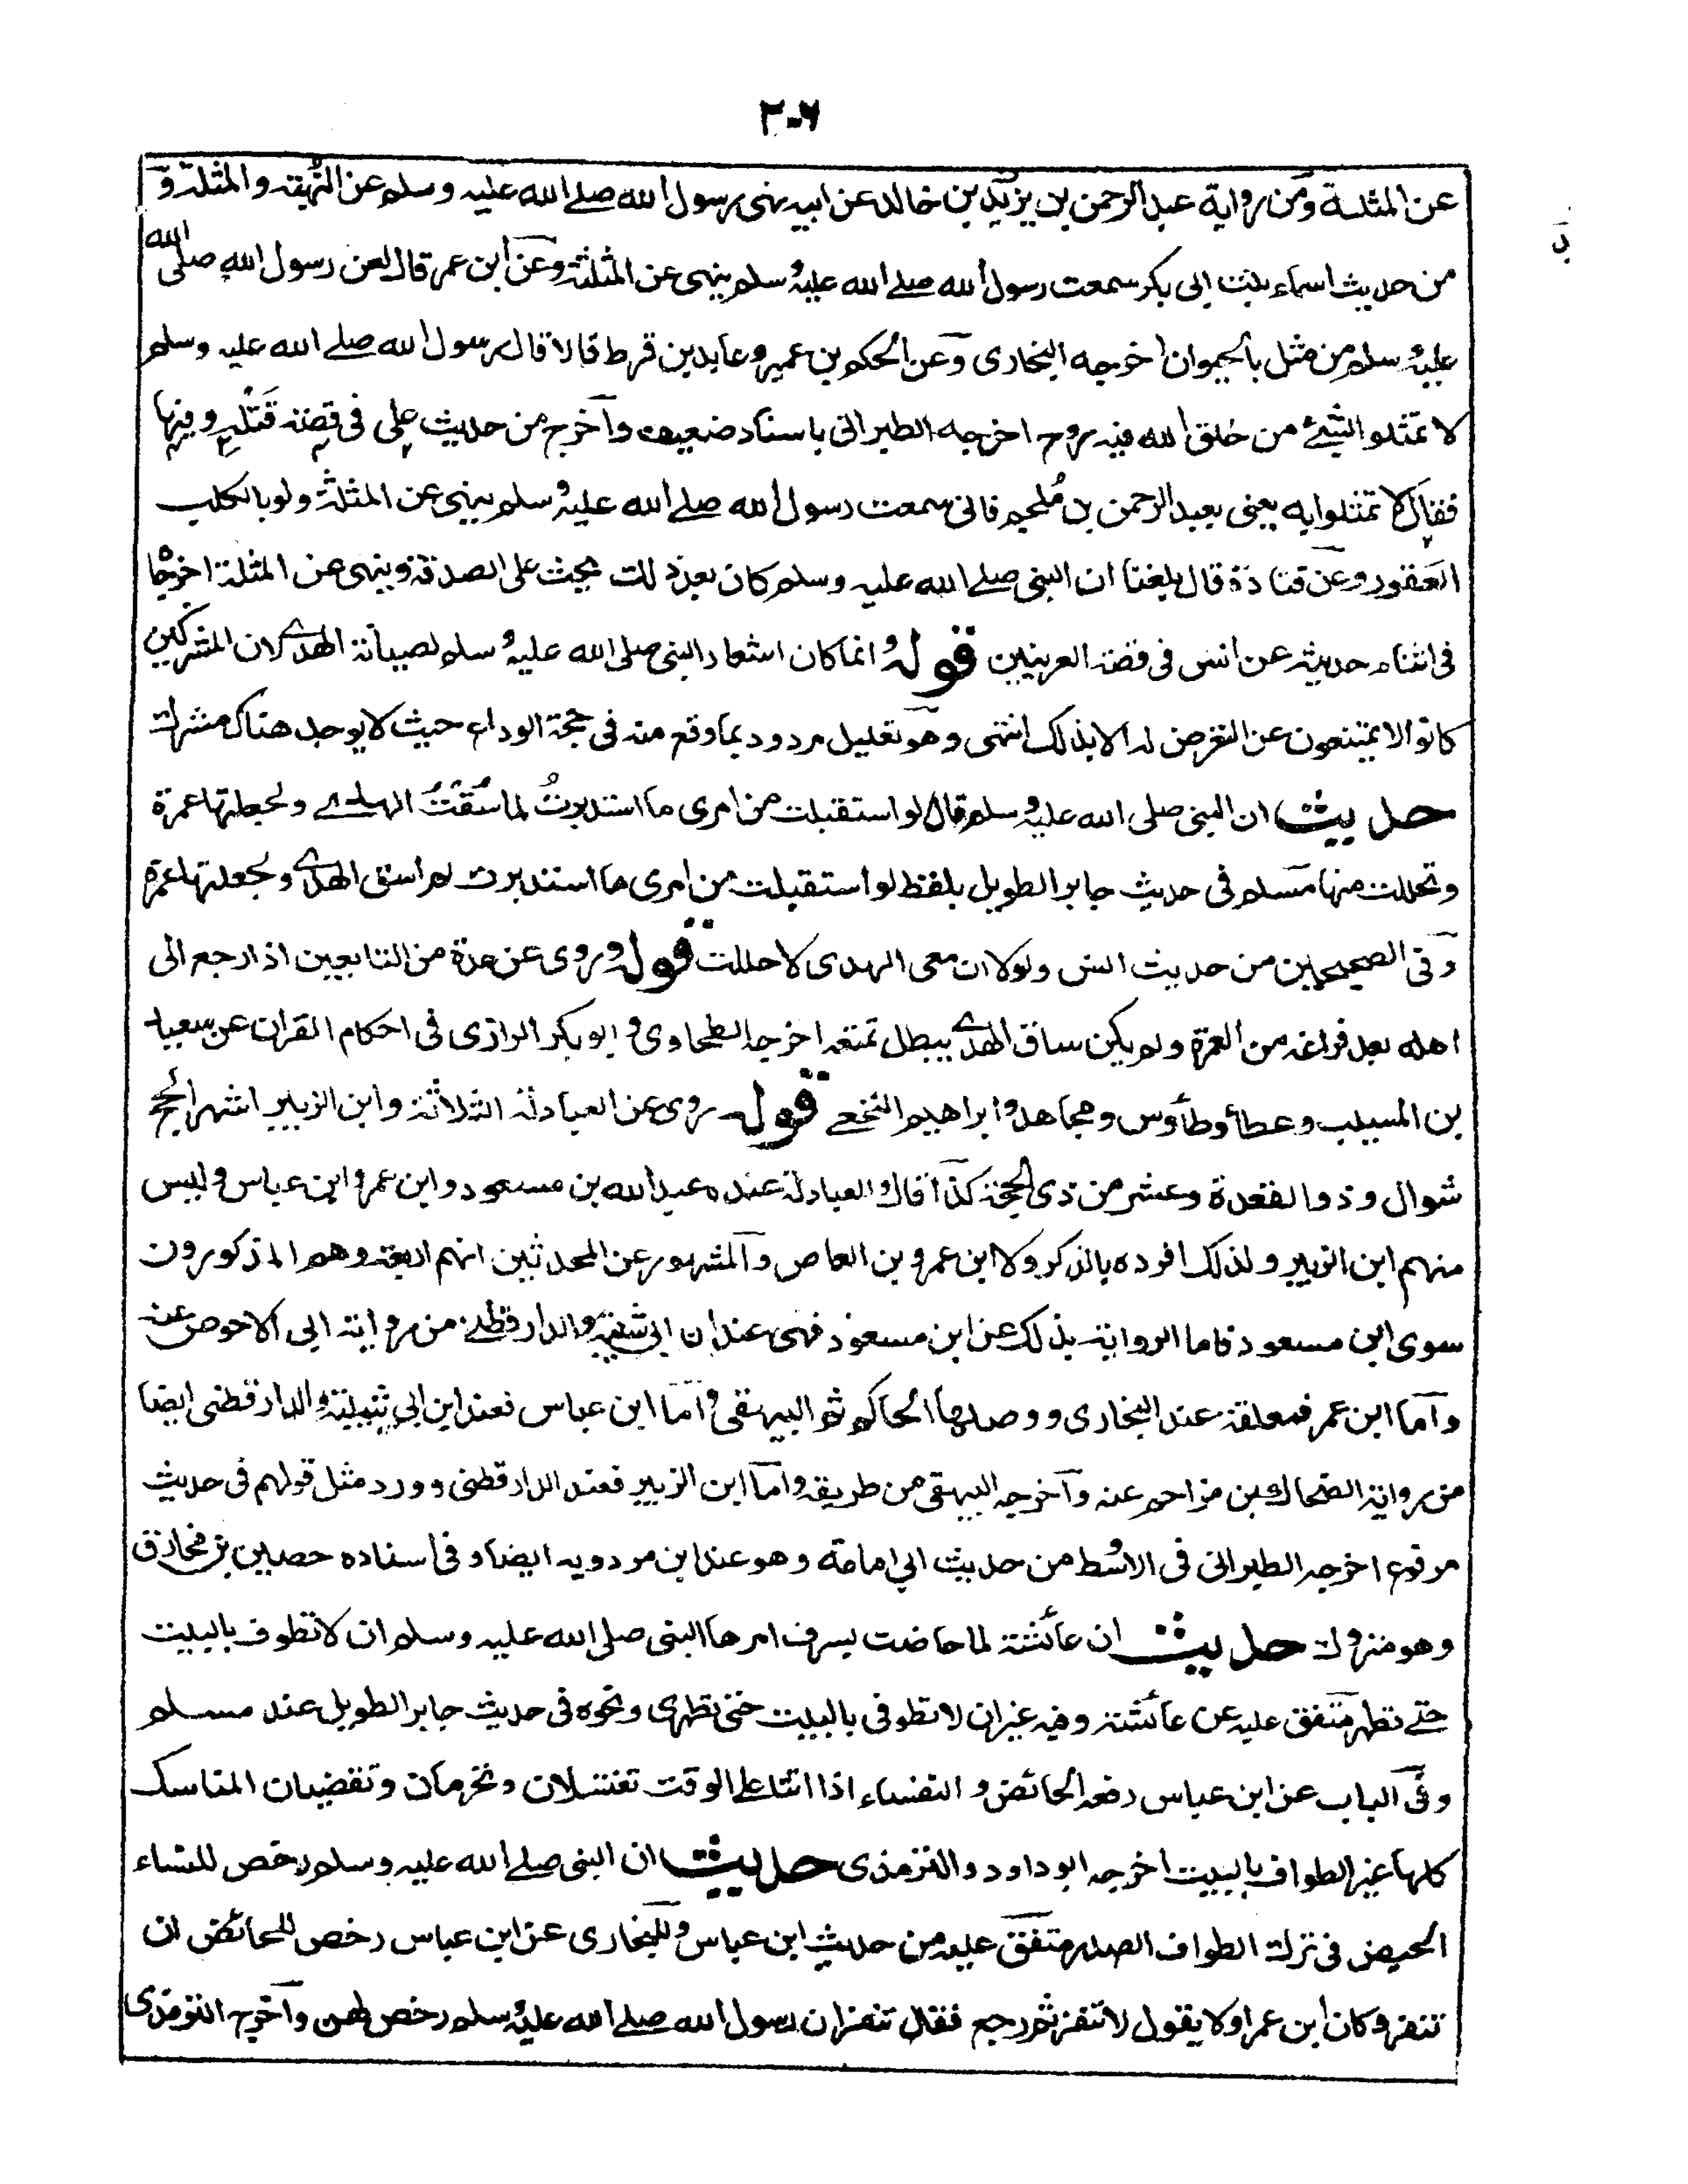 ٢٠٦
عن المثلة ومن رواية عبد الرحمن بن يزيد بن خالد عن ابيه نهى رسول الله صلے الله عليه وسلم عن النهبة والمثلة و
من حديث اسماء بنت ابى بكر سمعت رسول الله صلے الله عليه وسلم ينهى عن المثلة وعن ابن عمر قال لعن رسول الله صلى الله
عليه وسلم من مثل بالحيوان اخرجه البخارى وعن الحكم بن عمير وعابد بن قرط قالا قال رسول الله صلے الله عليه وسلم
لا تمثلوا بشئ من خلق الله فيه روح اخرجه الطبرانى باسناد ضعيف وآخرج من حديث على فى قصة قتله وفيها
فقال لا تمثلوا به يعنى بعبد الرحمن بن مُلجم فانى سمعت رسول الله صلے الله عليه وسلم ينهى عن المثلة ولو بالكلب
العقور وعن قتادة قال بلغنا ان النبى صلے الله عليه وسلم كان بعد ذلك يحث على الصدقة وينهى عن المثلة اخرجها
فى اثناء حديثه عن انس فى قصة العرنيين قوله وانما كان اشعار النبى صلى الله عليه وسلم لصيانة الهدے لان المشركين
كانوا لا يمتنعون عن التعرض له الا بذلك انتهى وهو تعليل مردود بما وقع منه فى حجة الوداع حيث لا يوجد هناك مشرك
حديث ان النبى صلى الله عليه وسلم قال لو استقبلت من امرى ما استدبرتُ لما سُقتُ الهدے ولجعلتها عمرة
وتحللت منها مسلم فى حديث جابر الطويل بلفظ لو استقبلت من امرى ما استدبرت لم اسق الهدے ولجعلتها عمرة
وفى الصحيحين من حديث انس ولولا ان معى الهدى لاحللت قوله وروى عن عدة من التابعين اذا رجع الى
اهله بعد فراغه من العمرة ولم يكن ساق الهدے يبطل تمتعه اخرجه الطحاوى وابو بكر الرازى فى احكام القران عن سعيد
بن المسيب وعطاء وطاؤس ومجاهد وابراهيم النخعے قوله روى عن العبادلة الثلاثة وابن الزبير اشهر الحج
شوال وذو القعدة وعشر من ذى الحجة كذا قال والعبادلة عنده عبد الله بن مسعود وابن عمر وابن عباس وليس
منهم ابن الزبير ولذلك افرده بالذكر ولا ابن عمرو بن العاص والمشهور عن المحدثين انهم اربعة وهم المذكورون
سوى ابن مسعود فاما الرواية بذلك عن ابن مسعود فهى عند ابن ابى شيبة والدارقطنے من رواية ابى الاحوص عنه
وآما ابن عمر فمعلقة عند البخارى ووصلها الحاكم ثم البيهقى وآما ابن عباس فعند ابن ابى شيبة والدارقطنى ايضا
من رواية الضحاك بن مزاحم عنه وآخرجه البيهقى من طريقه وآما ابن الزبير فعند الدارقطنى وورد مثل قولهم فى حديث
مرفوع اخرجه الطبرانى فى الاوسط من حديث ابى امامة وهو عند ابن مردويه ايضا وفى اسناده حصين بن مخارق
وهو متروك حديث ان عائشة لما حاضت بسرف امرها النبى صلى الله عليه وسلم ان لا تطوف بالبيت
حتے تطهر متفق عليه عن عائشة وفيه غير ان لا تطوفى بالبيت حتى تطهرى ونحوه فى حديث جابر الطويل عند مسلم
وفى الباب عن ابن عباس رفعه الحائض والنفساء اذا اتتا على الوقت تغتسلان وتحرمان وتقضيان المناسك
كلها غير الطواف بالبيت اخرجه ابو داود والترمذى حديث ان النبى صلے الله عليه وسلم رخص للنساء
الحيض فى ترك الطواف الصدر متفق عليه من حديث ابن عباس وللبخارى عن ابن عباس رخص للحائض ان
تنفر وكان ابن عمر اولا يقول لا تنفر ثم رجع فقال تنفر ان رسول الله صلے الله عليه وسلم رخص لهن وآخرج الترمذى